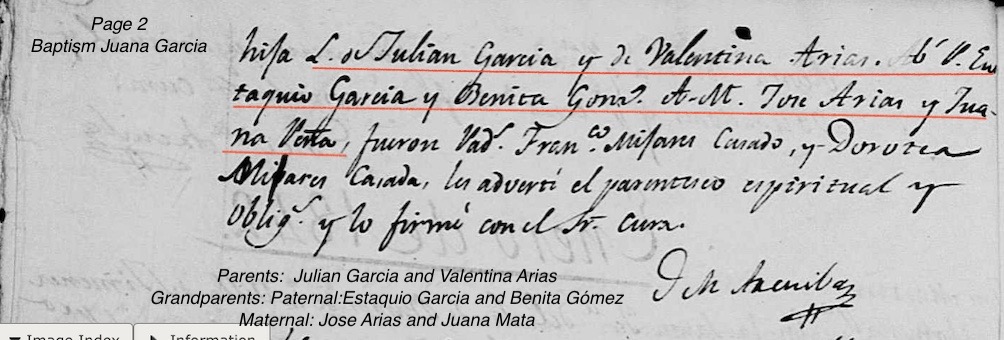 Page 2
Baptism Juana Garcia
hija L. de Julian Garcia y de Valentina Arias. Ab.ˢ P. Eus
taquio Garcia y Benita Gonz. A. M. Jose Arias y Jua
na, fueron Pad.ˢ Fran.ᶜᵒ Mijares Casado, y Dorotea
Mijares Casada, les advertí el parentesco espiritual y
Oblig.ˢ y lo firmé con el Sr. Cura.
J M
Parents: Julian Garcia and Valentina Arias
Grandparents: Paternal:Estaquio Garcia and Benita Gómez
Maternal: Jose Arias and Juana Mata
Image Index
Information